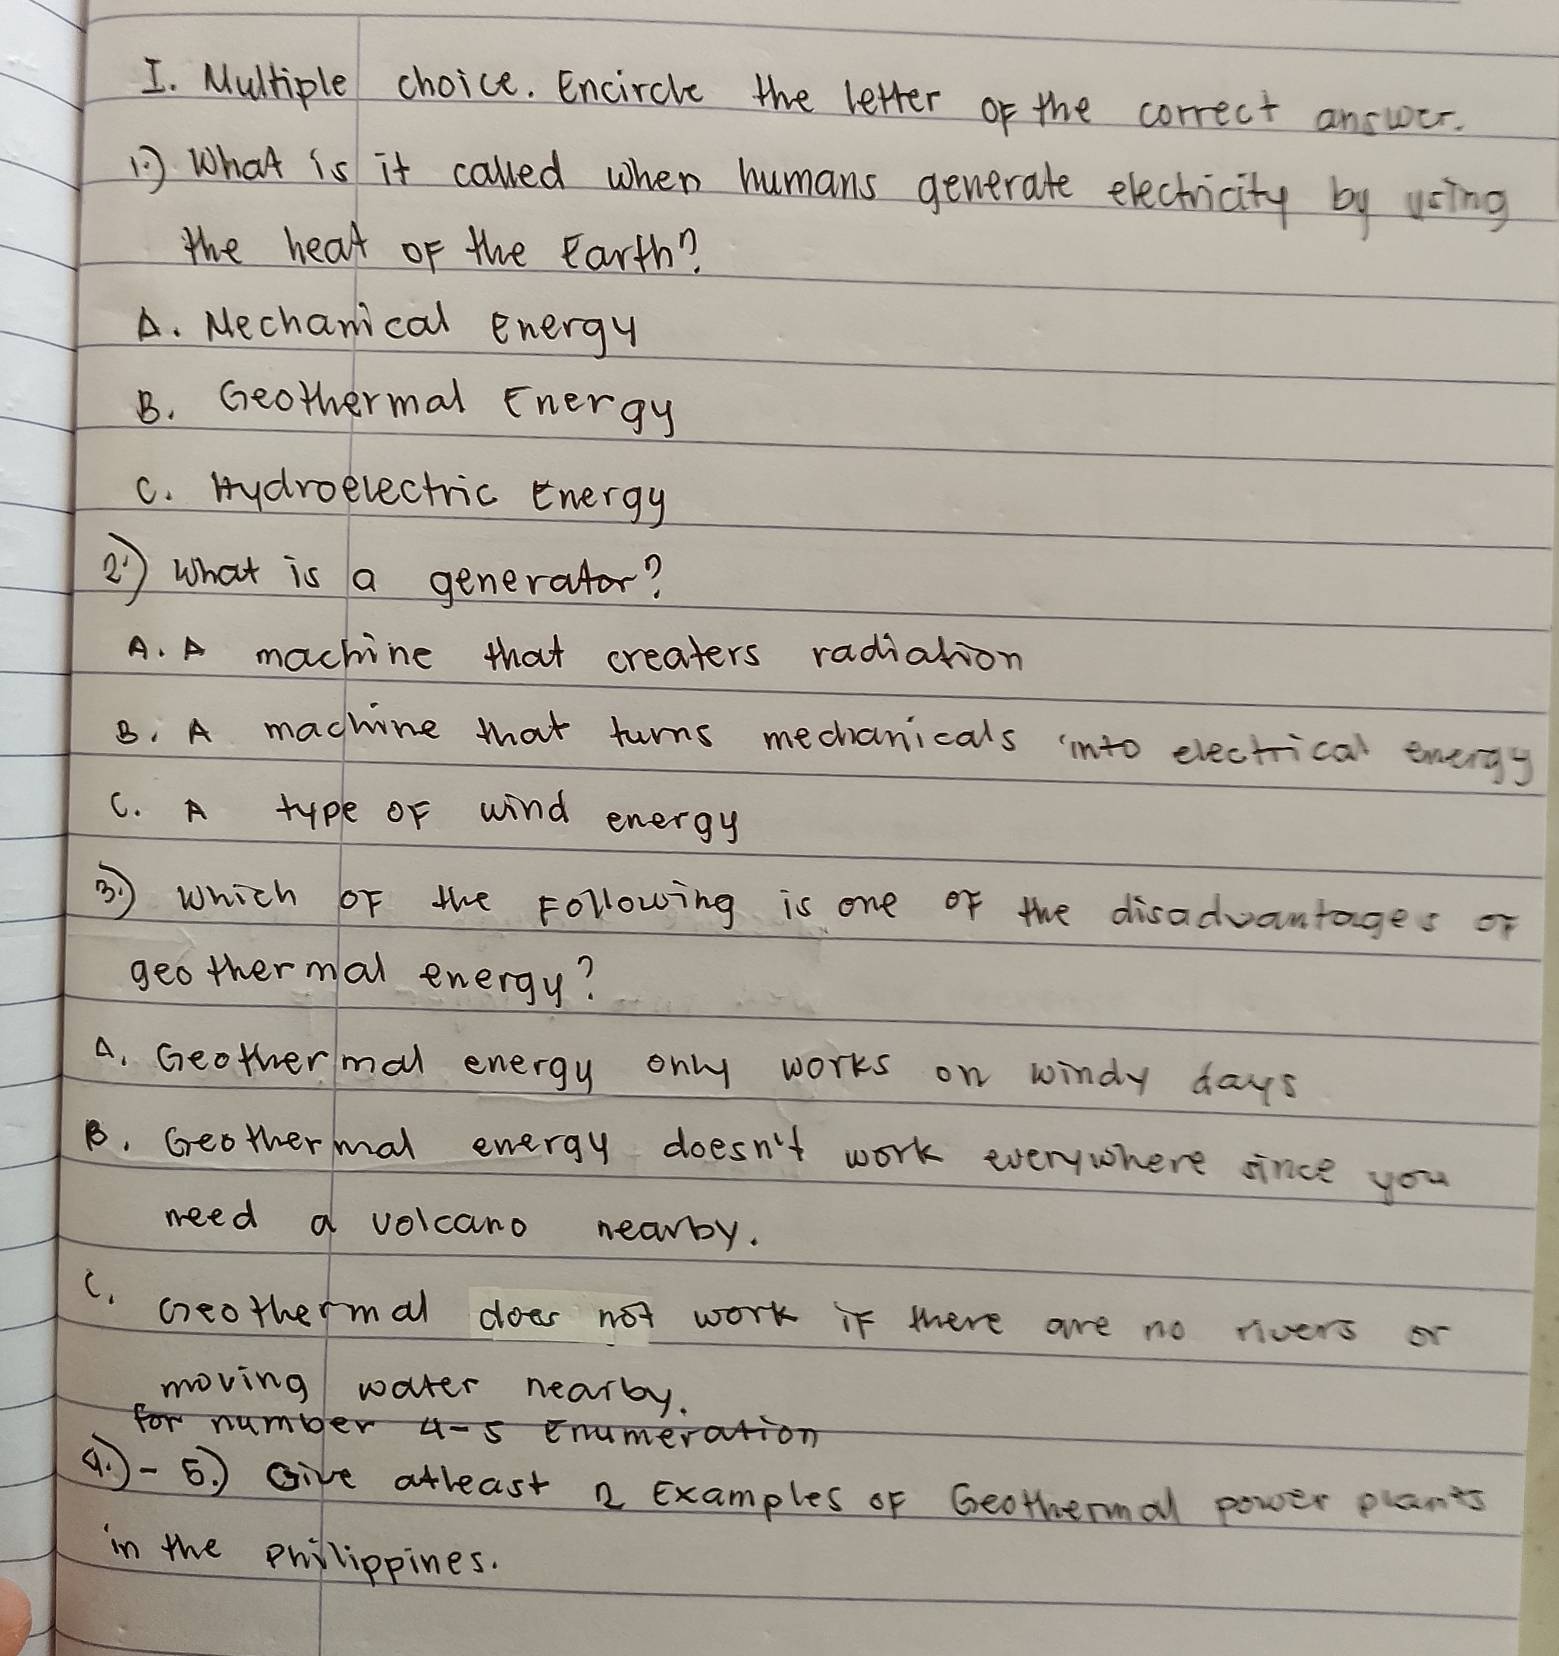 I. Multiple choice. Encircle the letter of the correct answer.
1.) What is it called when humans generate electricity by using
the heat of the Earth?
A. Mechanical energy
B. Geothermal Energy
C. Hydroelectric Energy
2.) What is a generator?
A. A machine that creaters radiation
B. A machine that turns mechanicals into electrical energy
C. A type of wind energy
3.) Which of the Following is one of the disadvantages of
geothermal energy?
A. Geothermal energy only works on windy days
B. Geothermal energy doesn't work everywhere since you
need a volcano nearby.
C. Geothermal does not work if there are no rivers or
moving water nearby.
for number 4-5 Enumeration
4.) - 5.) Give atleast 2 Examples of Geothermal power plants
in the Philippines.